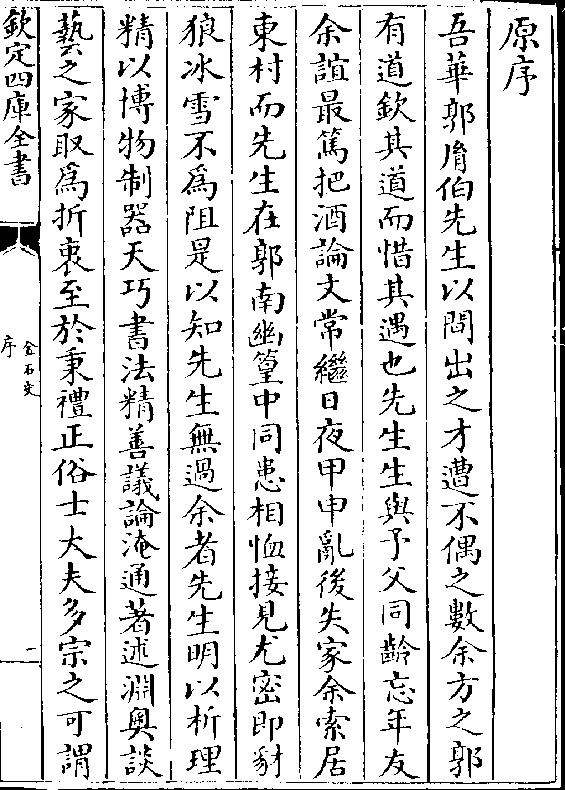 原序
吾華郭胤伯先生以間出之才遭不偶之數余方之郭
有道欽其道而惜其遇也先生生與予父同齡忘年友
余誼最篤把酒論文常繼日夜甲申亂後失家余索居
東村而先生在郭南幽篁中同患相恤接見尤密即豺
狼冰雪不為阻是以知先生無過余者先生明以析理
精以博物制器天巧書法精善議論淹通著述淵奥談
藝之家取為折衷至於秉禮正俗士大夫多宗之可謂
欽定四庫全書
金石史
序
一